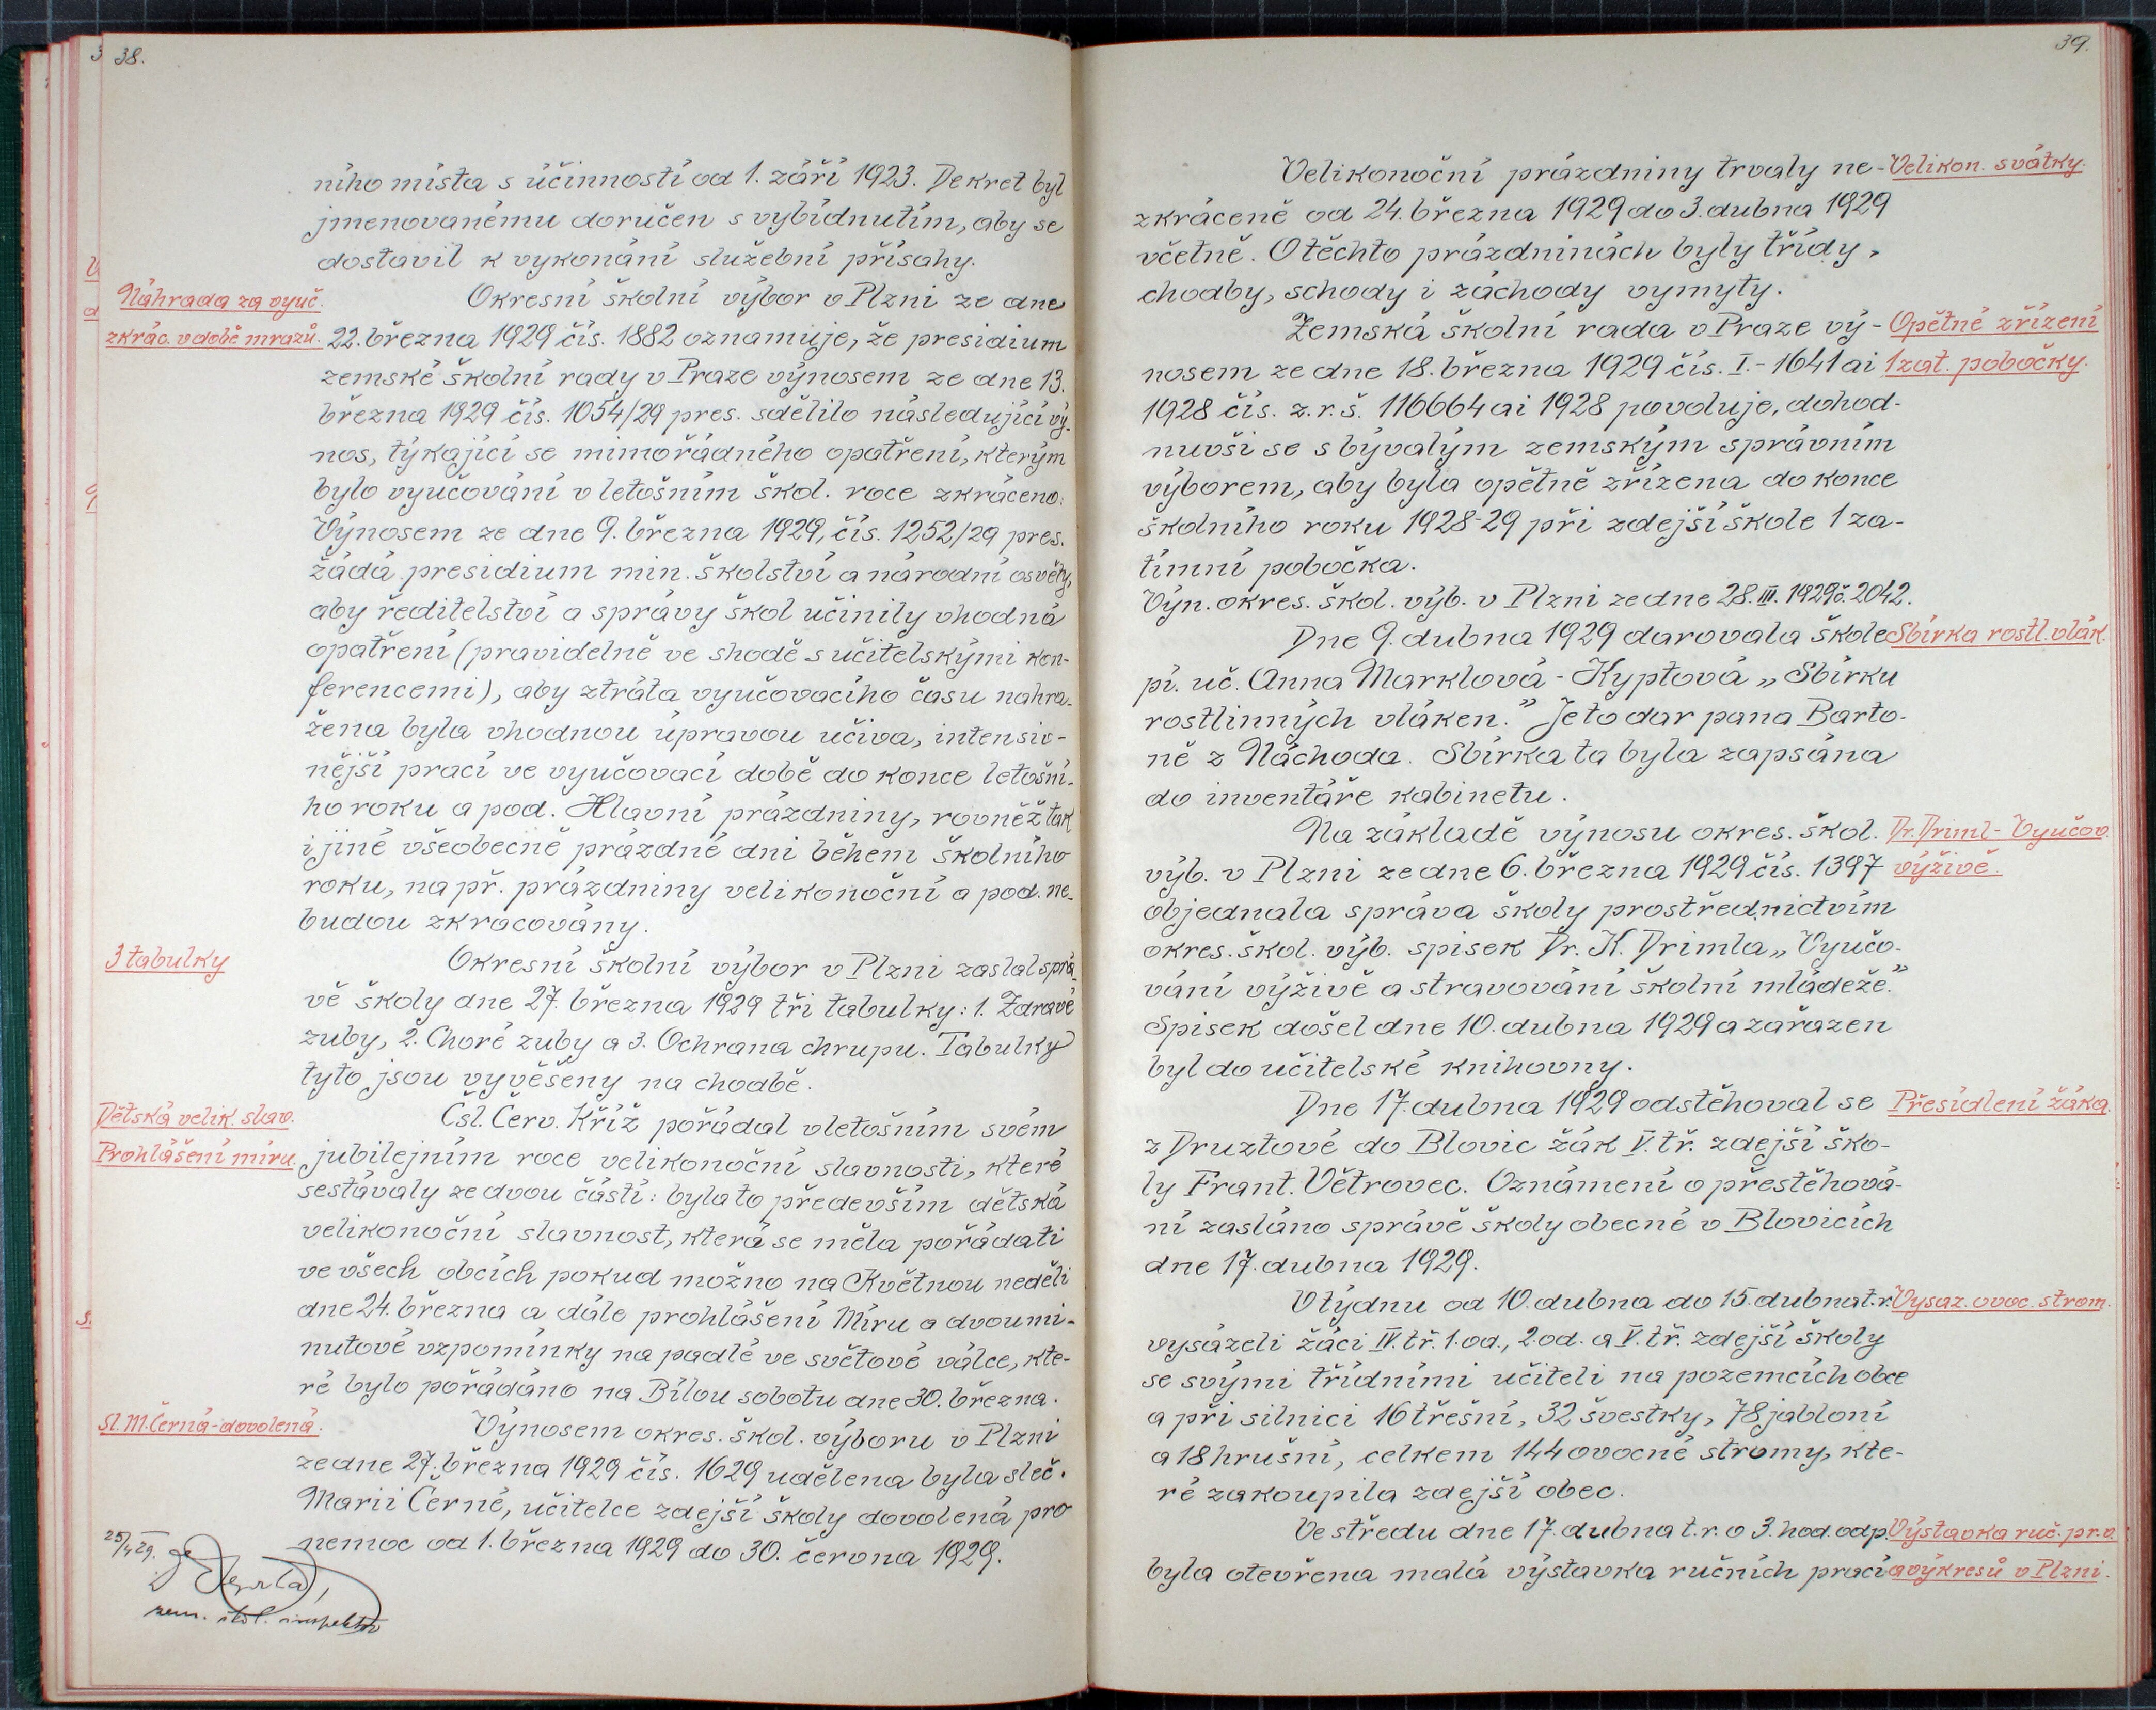 38.
ního místa s účinností od 1. září 1923. Dekret byl
jmenovanému doručen s vybídnutím, aby se
dostavil k vykonání služební přísahy.
Náhrada za vyuč.
zkrác. v době mrazů.
Okresní školní výbor v Plzni ze dne
22. března 1929 čís. 1882 oznamuje, že presidium
zemské školní rady v Praze výnosem ze dne 13.
března 1929 čís. 1054/29 pres. sdělilo následující vý-
nos, týkající se mimořádného opatření, kterým
bylo vyučování v letošním škol. roce zkráceno:
Výnosem ze dne 9. března 1929, čís. 1252/29 pres.
žádá presidium min. školství a národní osvěty,
aby ředitelství a správy škol učinily vhodná
opatření (pravidelně ve shodě s učitelskými kon-
ferencemi), aby ztráta vyučovacího času nahra-
žena byla vhodnou úpravou učiva, intensiv-
nější prací ve vyučovací době do konce letošní-
ho roku a pod. Hlavní prázdniny, rovněž tak
i jiné všeobecně prázdné dni během školního
roku, na př. prázdniny velikonoční a pod. ne-
budou zkracovány.
3 tabulky
Okresní školní výbor v Plzni zaslal sprá-
vě školy dne 27. března 1929 tři tabulky: 1. Zdravé
zuby, 2. Choré zuby a 3. Ochrana chrupu. Tabulky
tyto jsou vyvěšeny na chodbě.
Dětská velik. slav.
Prohlášení míru.
Čsl. Červ. Kříž pořádal v letošním svém
jubilejním roce velikonoční slavnosti, které
sestávaly ze dvou částí: byla to především dětská
velikonoční slavnost, která se měla pořádati
ve všech obcích pokud možno na Květnou neděli
dne 24. března a dále prohlášení Míru a dvoumi-
nutové vzpomínky na padlé ve světové válce, kte-
ré bylo pořádáno na Bílou sobotu dne 30. března.
Sl. M. Černá - dovolená.
Výnosem okres. škol. výboru v Plzni
ze dne 27. března 1929 čís. 1629 udělena byla sleč.
Marii Černé, učitelce zdejší školy dovolená pro
nemoc od 1. března 1929 do 30. června 1929.
25/4 29.
zem. škol. inspektor
39.
Velikonoční prázdniny trvaly ne-
Velikon. svátky.
zkráceně od 24. března 1929 do 3. dubna 1929
včetně. O těchto prázdninách byly třídy,
chodby, schody i záchody vymyty.
Zemská školní rada v Praze vý-
Opětné zřízení
nosem ze dne 18. března 1929 čís. I.-1641 ai
1 zat. pobočky.
1928 čís. z. r. š. 116664 ai 1928 povoluje, dohod-
nuvši se s bývalým zemským správním
výborem, aby byla opětně zřízena do konce
školního roku 1928-29 při zdejší škole 1 za-
tímní pobočka.
Výn. okres. škol. výb. v Plzni ze dne 28. III. 1929 č. 2042.
Dne 9. dubna 1929 darovala škole
Sbírka rostl. vlák.
pí. uč. Anna Marklová - Kyptová „Sbírku
rostlinných vláken." Je to dar pana Barto-
ně z Náchoda. Sbírka ta byla zapsána
do inventáře kabinetu.
Na základě výnosu okres. škol.
Dr. Driml - Vyučov.
výb. v Plzni ze dne 6. března 1929 čís. 1397
výživě.
objednala správa školy prostřednictvím
okres. škol. výb. spisek Dr. K. Drimla „Vyučo-
vání výživě a stravování školní mládeže."
Spisek došel dne 10. dubna 1929 a zařazen
byl do učitelské knihovny.
Dne 17. dubna 1929 odstěhoval se
Přesídlení žáka.
z Druztové do Blovic žák V. tř. zdejší ško-
ly Frant. Větrovec. Oznámení o přestěhová-
ní zasláno správě školy obecné v Blovicích
dne 17. dubna 1929.
V týdnu od 10. dubna do 15. dubna t. r.
Vysaz. ovoc. strom.
vysázeli žáci IV. tř. 1. od., 2. od. a V. tř. zdejší školy
se svými třídními učiteli na pozemcích obce
a při silnici 16 třešní, 32 švestky, 78 jabloní
a 18 hrušní, celkem 144 ovocné stromy, kte-
ré zakoupila zdejší obec.
Ve středu dne 17. dubna t. r. o 3. hod. odp.
Výstavka ruč. pr. a
byla otevřena malá výstavka ručních prací
a výkresů v Plzni.